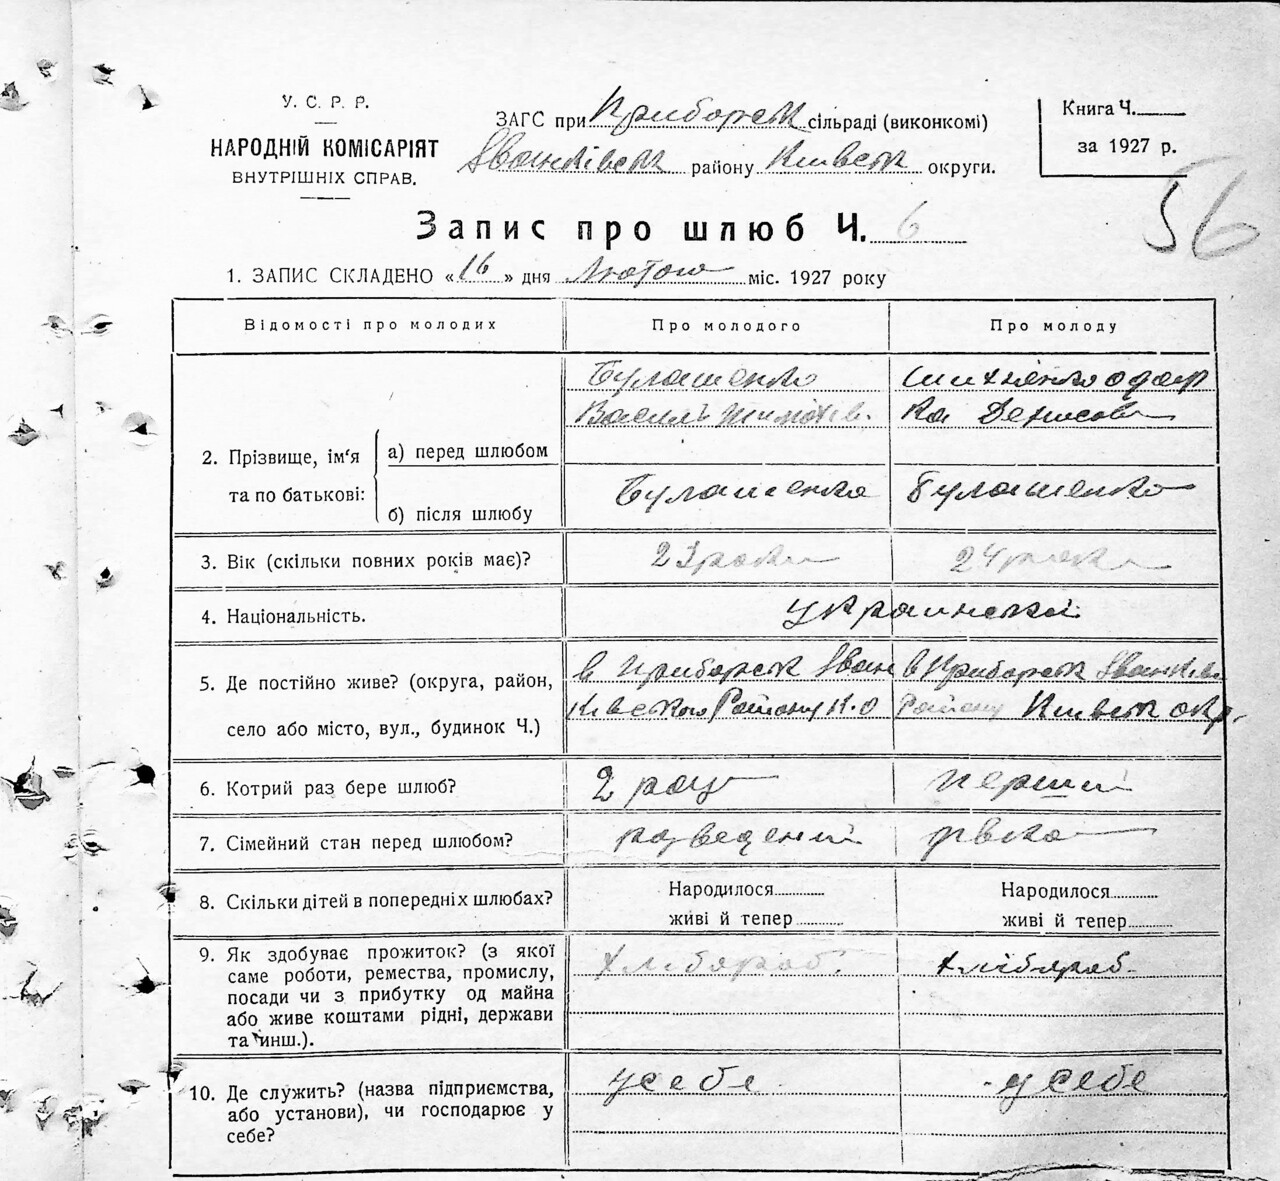 У. С. Р. Р.
НАРОДНІЙ КОМІСАРІЯТ
ВНУТРІШНІХ СПРАВ.
ЗАГС при Приборськ сільраді (виконкомі)
Іванківськ району Київськ округи.
Книга Ч.
за 1927 р.
56
Запис про шлюб Ч. 6
1. ЗАПИС СКЛАДЕНО «16» дня Лютого міс. 1927 року
Відомості про молодих
Про молодого
Про молоду
2. Прізвище, ім'я
та по батькові:
а) перед шлюбом
Булашенко
Василь Тимохів.
Шихненко Одар
ка Денисова
б) після шлюбу
Булашенко
Булашенко
3. Вік (скільки повних років має)?
23 роки
24 роки
4. Національність.
украинська
5. Де постійно живе? (округа, район,
село або місто, вул., будинок Ч.)
в Приборськ Іван
ківського Району К.О
в Приборськ Іванків
Району Київськ окр.
6. Котрий раз бере шлюб?
2 раз
перший
7. Сімейний стан перед шлюбом?
разведений
8. Скільки дітей в попередніх шлюбах?
Народилося
живі й тепер
Народилося
живі й тепер
9. Як здобуває прожиток? (з якої
саме роботи, ремества, промислу,
посади чи з прибутку од майна
або живе коштами рідні, держави
та инш.).
хлібороб.
хлібороб.
10. Де служить? (назва підприємства,
або установи), чи господарює у
себе?
у себе
у себе